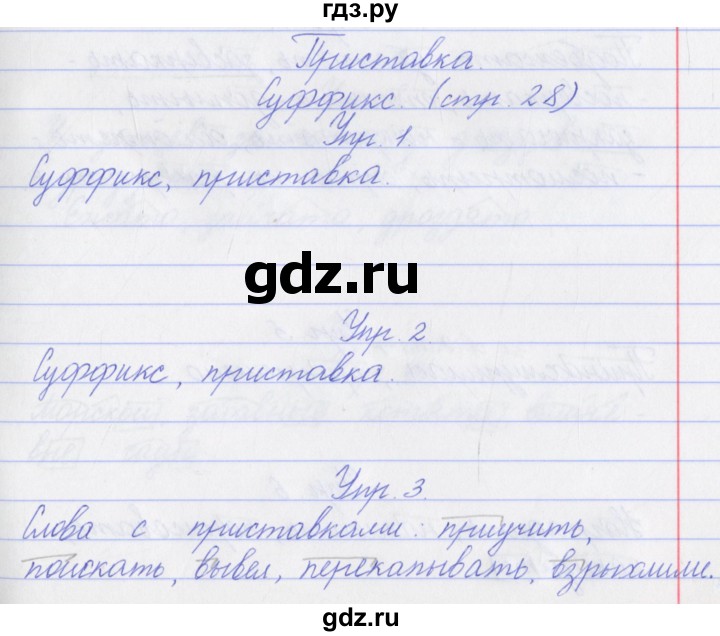 гдз.ру
Приставка.
Суффикс. (стр. 28)
Упр. 1.
Суффикс, приставка.
gdz.ru
Упр. 2
Суффикс, приставка.
Упр. 3.
Слова с приставками: приучить,
поискать, вывел, перекапывать, взрыхлили.
gdz.ru